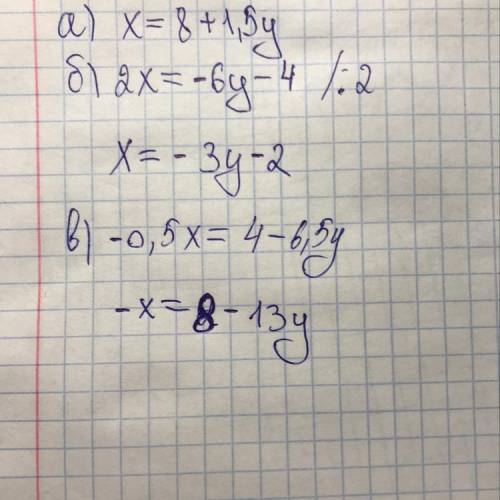 а) x = 8 + 1,5y
б) 2x = -6y - 4 /:2
x = - 3y - 2
в) -0,5x = 4 - 6,5y
-x = 8 - 13y